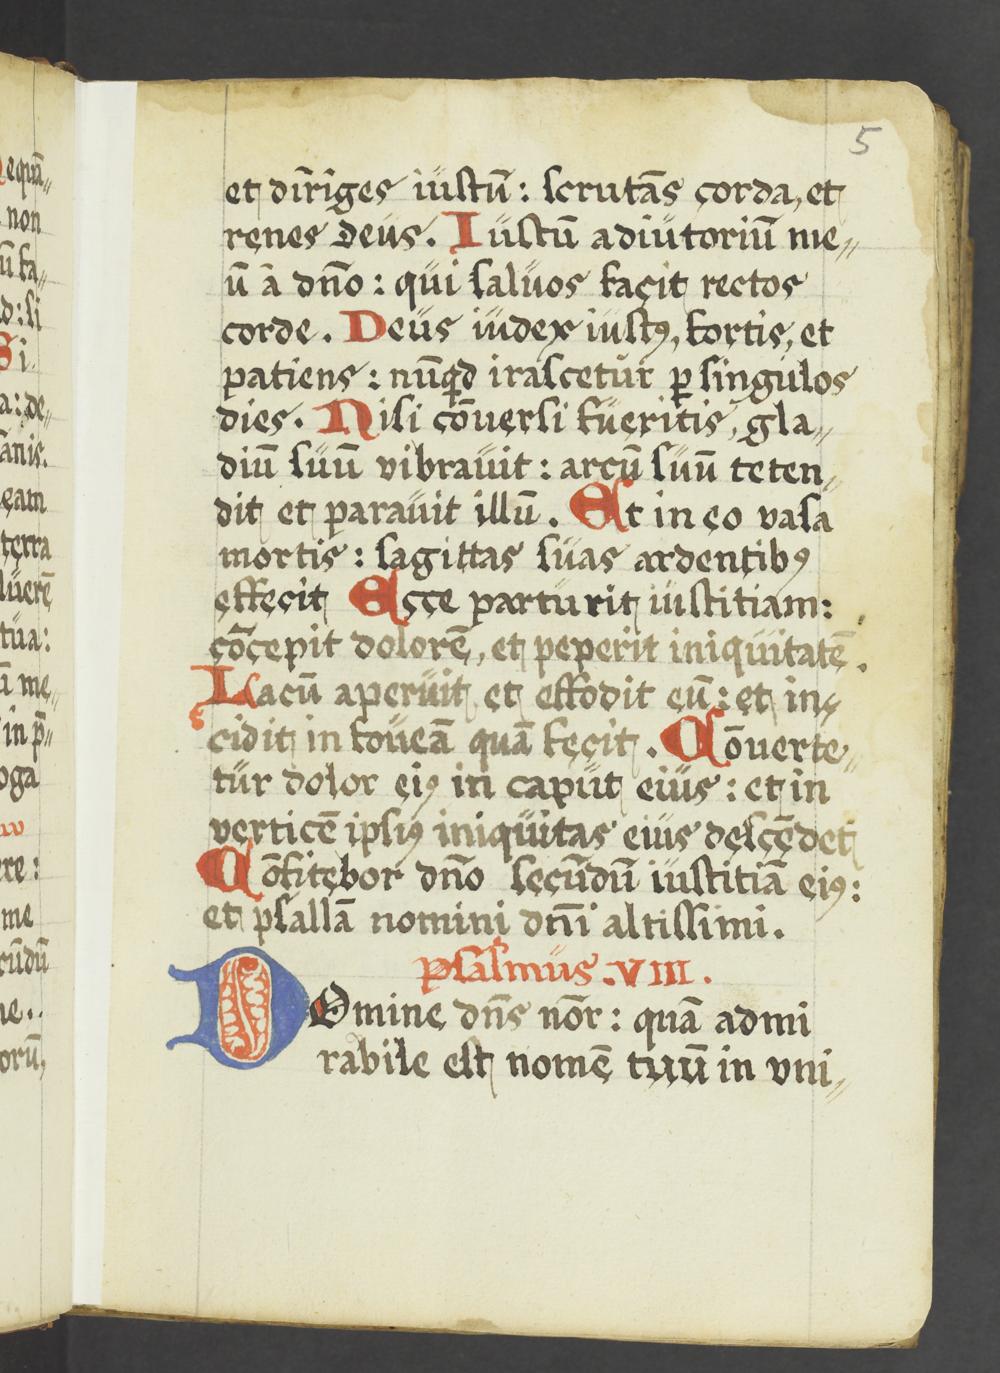 5
et dir̄iges iustū: scrutās corda, et
renes deus. Iustū adiutoriū me„
ū ā dn̄o: qui saluos facit rectos
corde. Deus iudex iustꝰ, fortis, et
patiens: nūqd irascetur ꝑ singulos
dies. Nisi cōuersi fueritis, gla„
diū suū vibrauit: arcū suū teten„
dit et parauit illū. Et in eo vasa
mortis: sagittas suas ardentibꝰ
effecit Ecce parturit iustitiam:
cōcepit dolorē, et peperit iniquitatē.
Lacū aperuit et effodit eū: et in„
cidit in foueā quā fecit. Cōuerte„
tur dolor eiꝰ in caput eius: et in
verticē ipsiꝰ iniquitas eius descēdet
Cōfitebor dn̄o secūdū iustitiā eiꝰ:
et psallā nomini dn̄i altissimi.
psalmus. VIII.
DOmine dn̄s nōr: quā admi
rabile est nomē tuū in vni„
equā„
non
ū fa„
d: si
Si
a: de„
ānis.
eam
terra
luerē
tua:
ū me„
in p̄„
oga
re:
me
cūdū
ne..
orū,